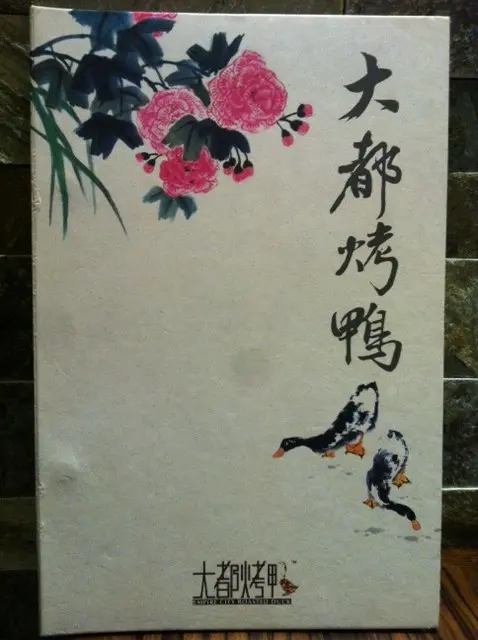 大都烤鸭
大都烤鸭
EMPIRE CITY ROASTED DUCK